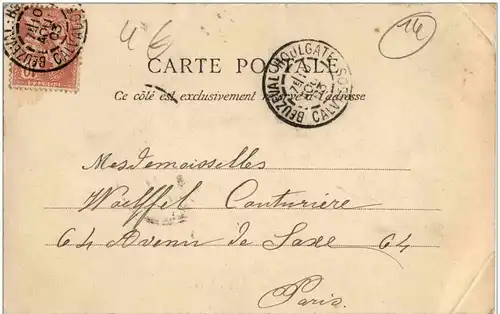 46
14
CARTE POSTALE
Ce côté est exclusivement réservé à l'adresse
BEUZEVAL-HOULGATE
CALVADOS
Mesdemoiselles
Woelffel Couturière
64 Avenue de Saxe 64
Paris